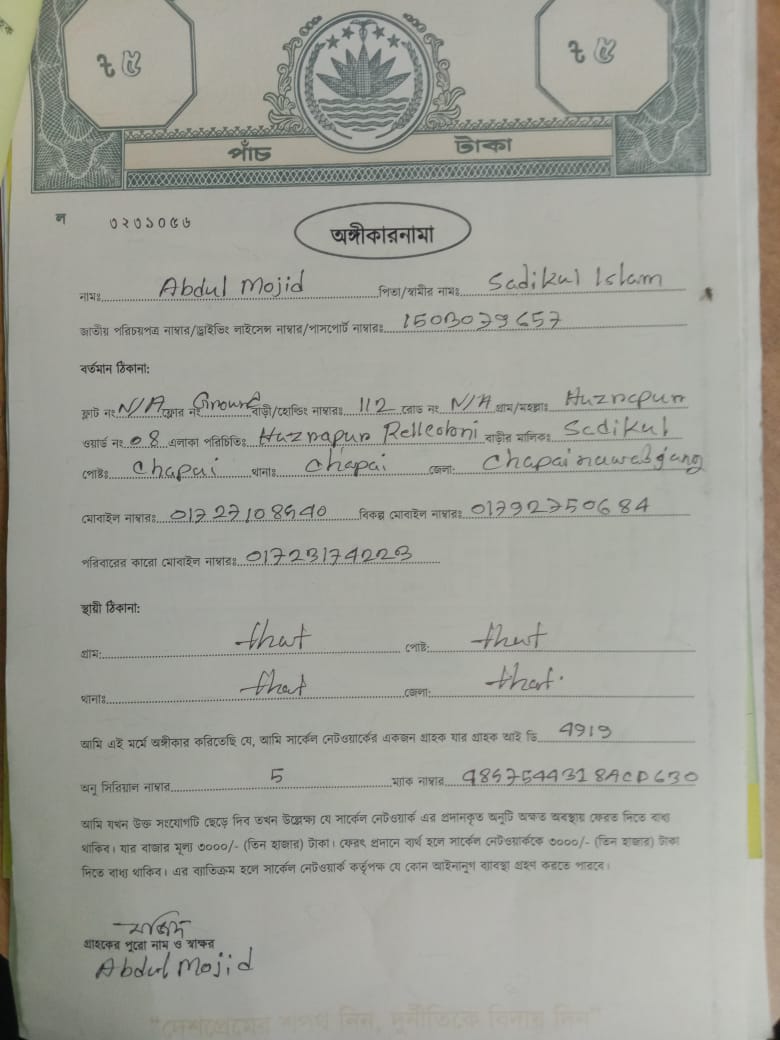 ৳৫ ৳৫
পাঁচ টাকা
ল ৩২৩১০৫৬
অঙ্গীকারনামা
নামঃ Abdul Mojid পিতা/স্বামীর নামঃ Sadikul Islam
জাতীয় পরিচয়পত্র নাম্বার/ড্রাইভিং লাইসেন্স নাম্বার/পাসপোর্ট নাম্বারঃ 1503079657
বর্তমান ঠিকানা:
ফ্লাট নং N/A ফ্লোর নং Ground বাড়ী/হোল্ডিং নাম্বারঃ 112 রোড নং N/A গ্রাম/মহল্লাঃ Huzrapur
ওয়ার্ড নং 08 এলাকা পরিচিতিঃ Huzrapur Relleoloni বাড়ীর মালিকঃ Sadikul
পোষ্টঃ Chapai থানাঃ Chapai জেলা: Chapainawabganj
মোবাইল নাম্বারঃ বিকল্প মোবাইল নাম্বারঃ 01792750684
পরিবারের কারো মোবাইল নাম্বারঃ 01723174223
স্থায়ী ঠিকানা:
গ্রাম: that পোষ্ট: that
থানাঃ that জেলা: that.
আমি এই মর্মে অঙ্গীকার করিতেছি যে, আমি সার্কেল নেটওয়ার্কের একজন গ্রাহক যার গ্রাহক আই ডি 4919
অনু সিরিয়াল নাম্বার 5 ম্যাক নাম্বার
আমি যখন উক্ত সংযোগটি ছেড়ে দিব তখন উল্লেখ্য যে সার্কেল নেটওয়ার্ক এর প্রদানকৃত অনুটি অক্ষত অবস্থায় ফেরত দিতে বাধ্য
থাকিব। যার বাজার মূল্য ৩০০০/- (তিন হাজার) টাকা। ফেরৎ প্রদানে ব্যর্থ হলে সার্কেল নেটওয়ার্ককে ৩০০০/- (তিন হাজার) টাকা
দিতে বাধ্য থাকিব। এর ব্যতিক্রম হলে সার্কেল নেটওয়ার্ক কর্তৃপক্ষ যে কোন আইনানুগ ব্যবস্থা গ্রহণ করতে পারবে।
মজিদ
গ্রাহকের পুরো নাম ও স্বাক্ষর
Abdul Mojid
"দেশপ্রেমের শপথ নিন, দুর্নীতিকে বিদায় দিন"